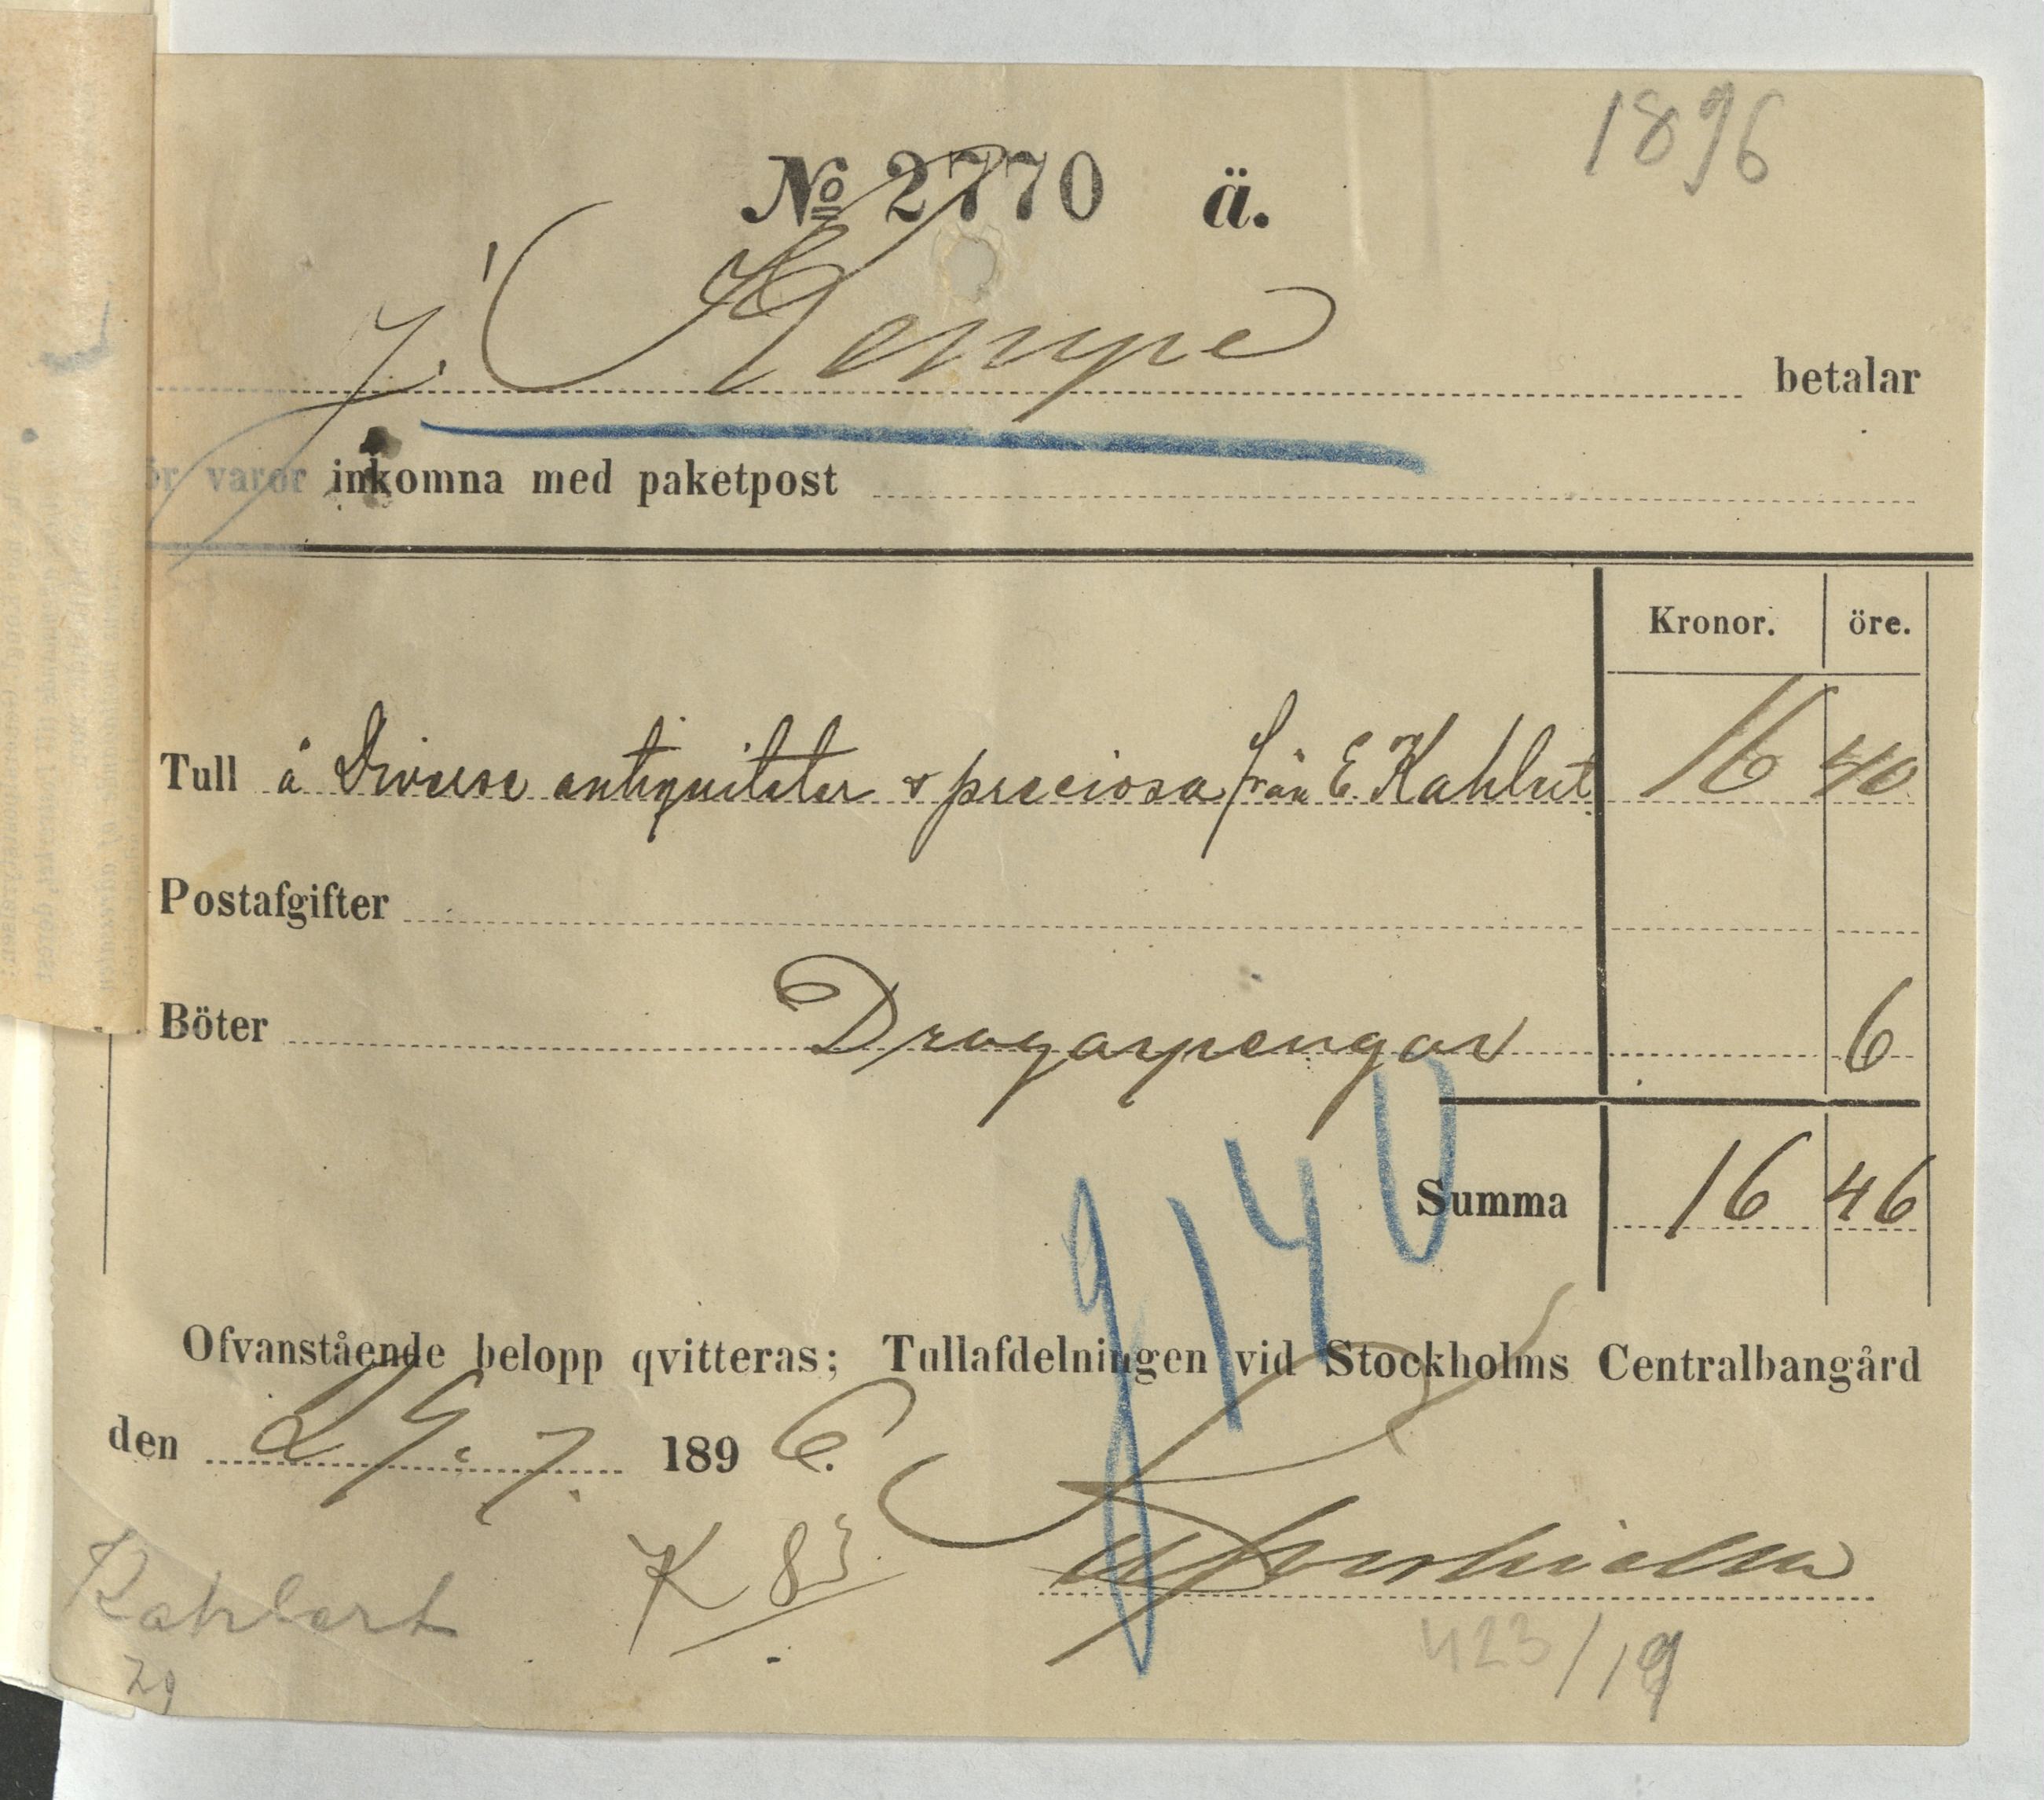 1896
No 2770 ä.
J. Kempe betalar
för varor inkomna med paketpost
Kronor. öre.
Tull å Diverse antiquiteter & preciosa från E. Kahlert 16 40
Postafgifter
Böter Dragarpengar 6
Summa 16 46
9140
Ofvanstående belopp qvitteras; Tullafdelningen vid Stockholms Centralbangård
den 29. 7. 1896.
K 83
Kahlert
29
423/19